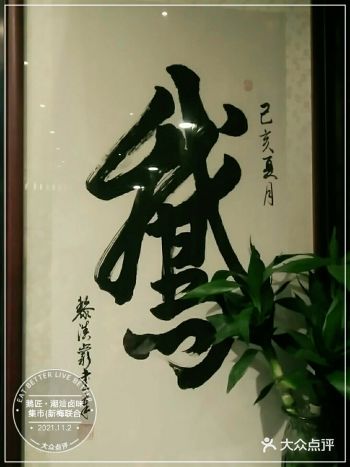 己亥夏月
鵞
EAT BETTER LIVE BETTER
鹅匠·潮汕卤味
集市(新梅联合
2021.11.2
大众点评
大众点评